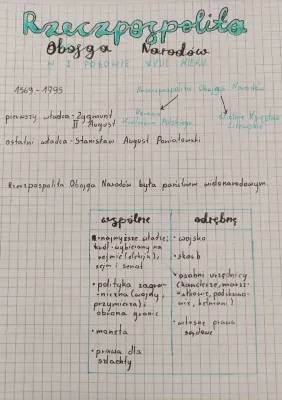 Rzeczpospolita
Obojga Narodów
W I POŁOWIE XVII WIEKU
1569 - 1795
Rzeczpospolita Obojga Narodów
pierwszy władca - Zygmunt
II August
Korona
Królestwa Polskiego
Wielkie Księstwo
Litewskie
ostatni władca - Stanisław August Poniatowski
Rzeczpospolita Obojga Narodów była państwem wielonarodowym.
wspólne
• najwyższe władze:
król wybierany na
sejmie (elekcja),
sejm i senat
• polityka zagra-
niczna (wojny,
przymierza),
obrona granic
• moneta
• prawa dla
szlachty
odrębne
• wojsko
• skarb
• osobni urzędnicy
(kanclerze, marsz-
ałkowie, podskarbi-
owie, hetmani)
• własne prawa
sądowe